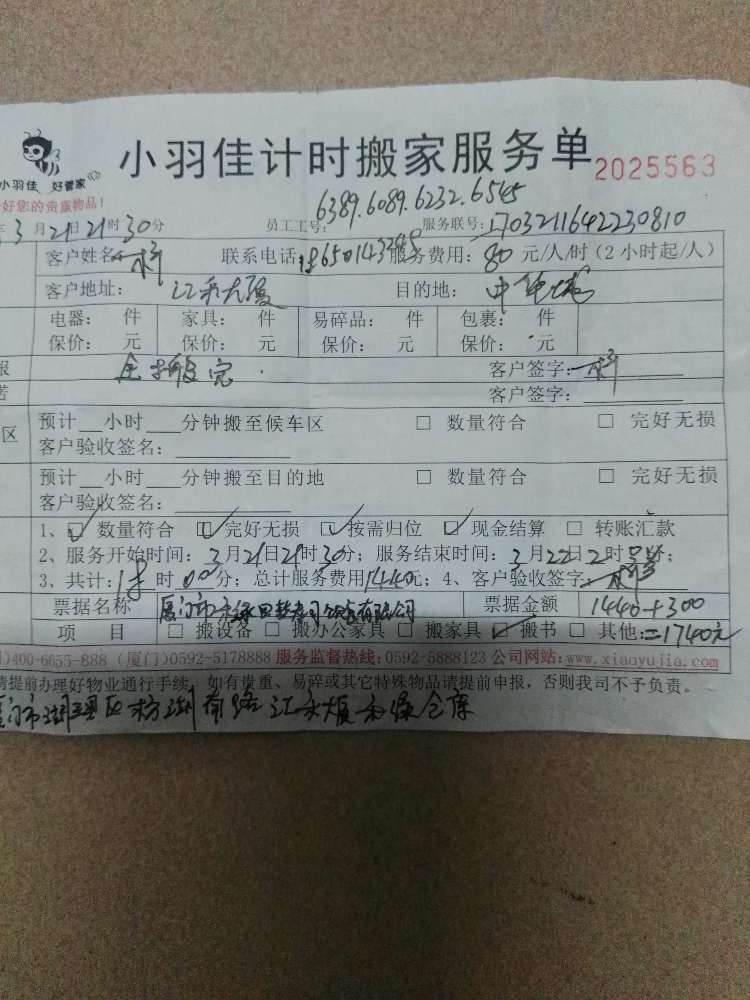 小羽佳计时搬家服务单 2025563
小羽佳 好管家
好您的贵重物品!
3月21日21时30分 员工工号: 6389.6089.6232.6545 服务联号: 1703211642230810
客户姓名 联系电话: 服务费用: 80 元/人/时(2小时起/人)
客户地址: 目的地:
电器: 件 家具: 件 易碎品: 件 包裹: 件
保价: 元 保价: 元 保价: 元 保价: 元
报 全搬完. 客户签字:
客户签字:
区 预计__小时___分钟搬至候车区 □ 数量符合 □ 完好无损
客户验收签名:
预计__小时___分钟搬至目的地 □ 数量符合 □ 完好无损
客户验收签名:
1、☑ 数量符合 ☑ 完好无损 ☑ 按需归位 ☑ 现金结算 □ 转账汇款
2、服务开始时间: 3月21日21时30分; 服务结束时间: 3月22日2时
3、共计: 时00分; 总计服务费用1440元; 4、客户验收签字
票据名称 厦门市 有限公司 票据金额 1440+300
项 目 □ 搬设备 □ 搬办公家具 □ 搬家具 ☑ 搬书 □ 其他:=1740元
)400-6655-888 (厦门)0592-5178888 服务监督热线:0592-5888123 公司网站:www.xiaoyujia.com
请提前办理好物业通行手续, 如有贵重、易碎或其它特殊物品请提前申报,否则我司不予负责。
门市湖里区枋湖南路 仓库